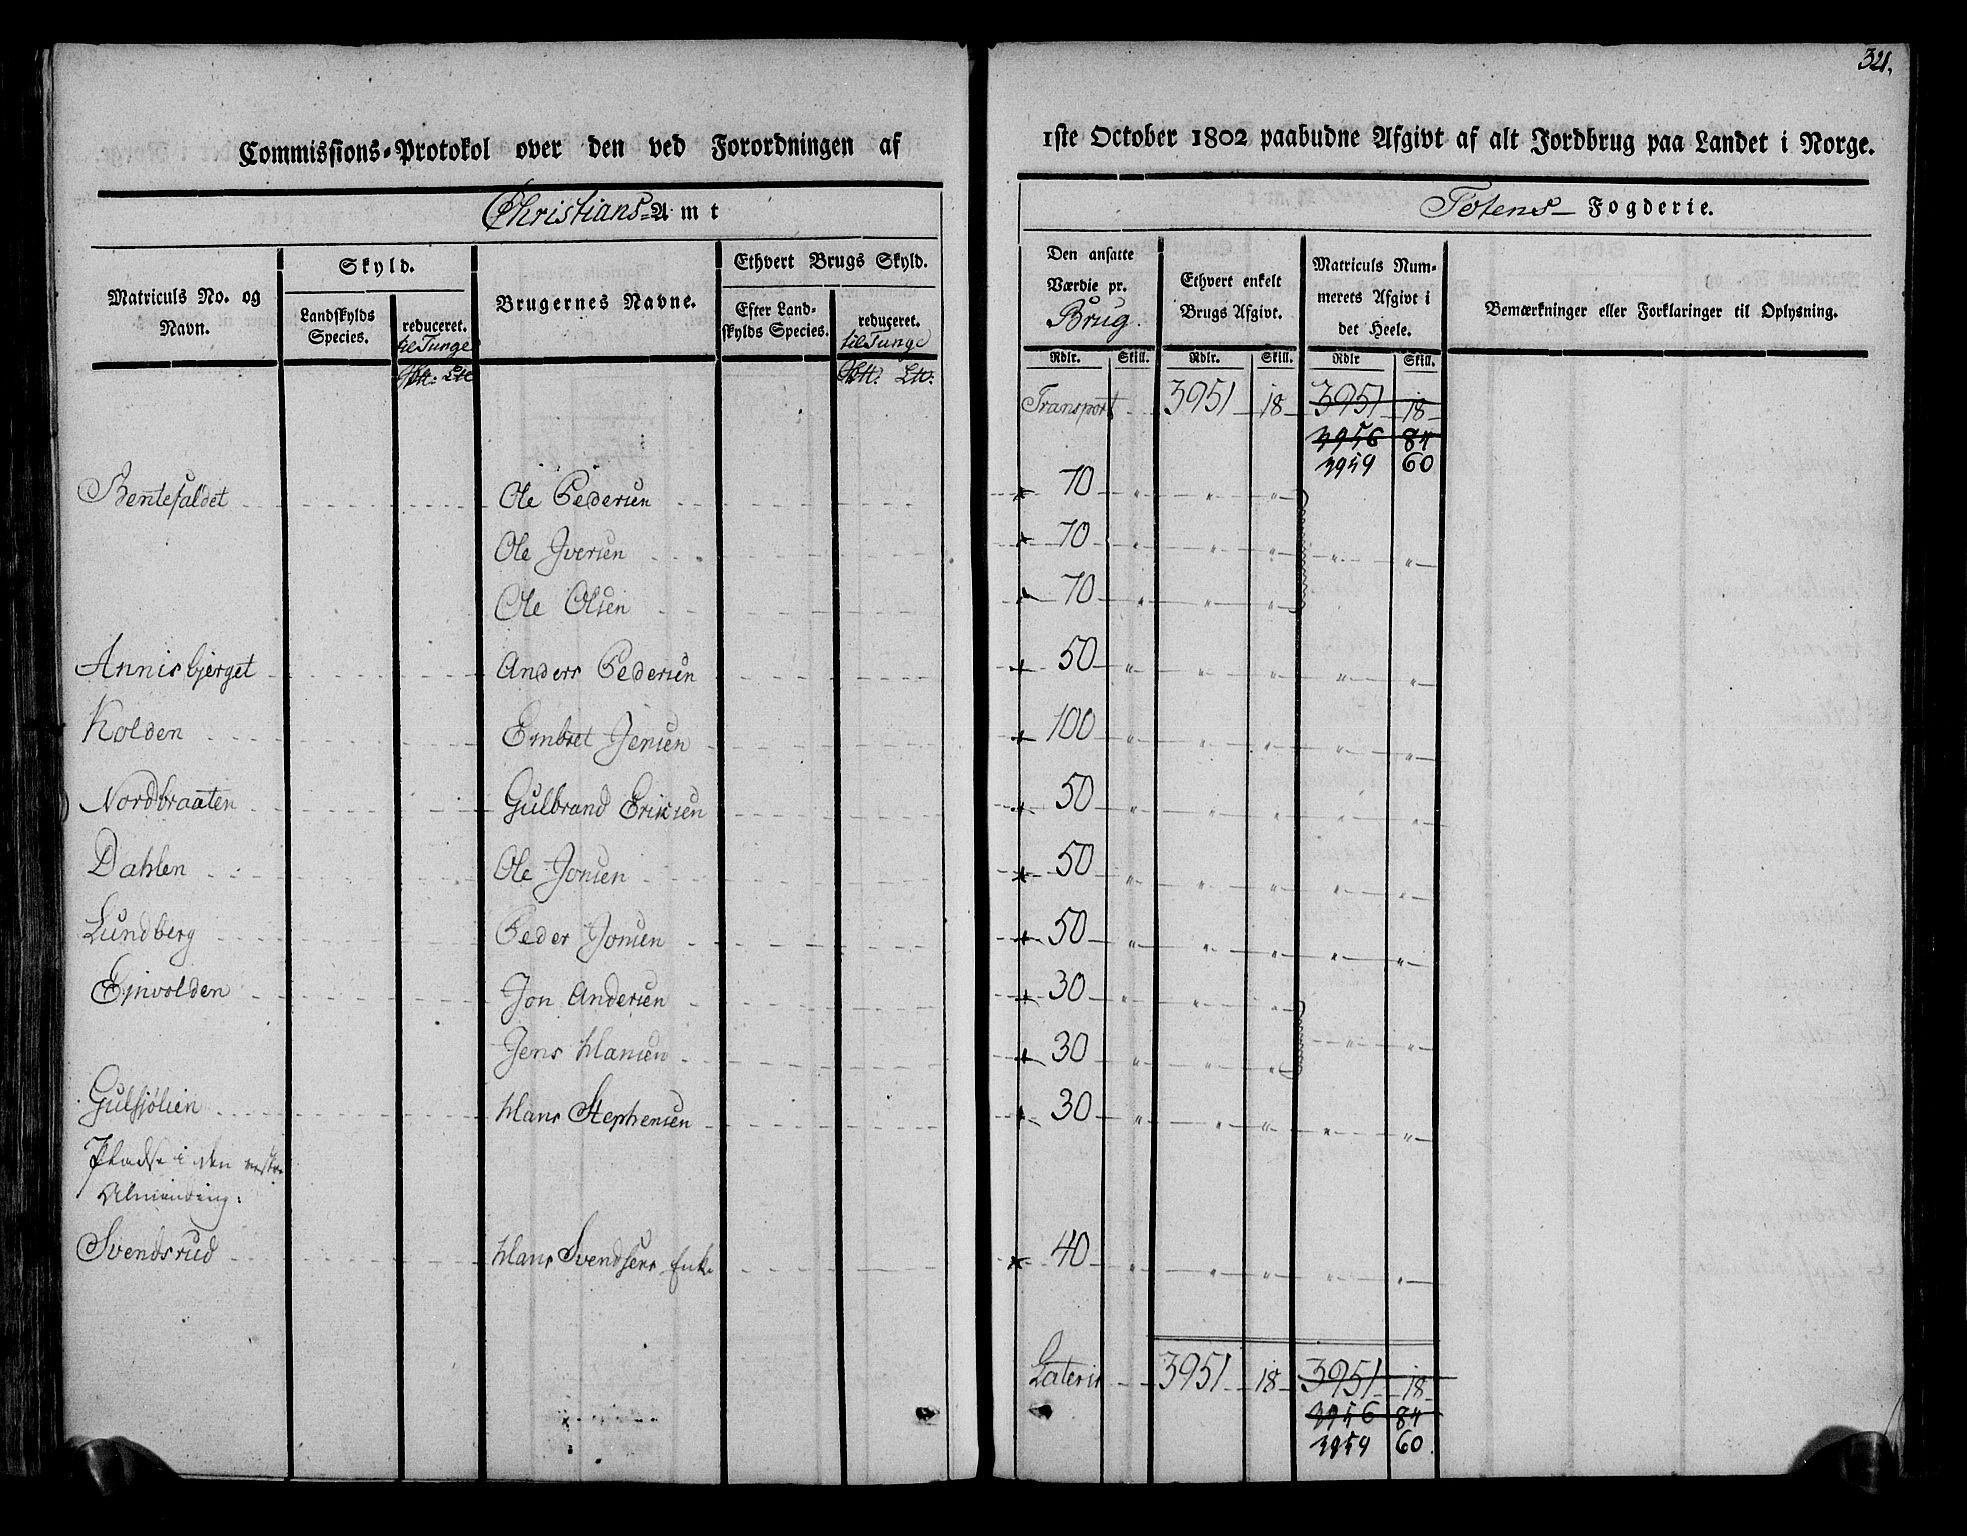 Commissions-Protokol over den ved Forordningen af
Christians-Amt
Matriculs No. og Navn.
Skyld.
Landskylds Species.
reduceret.
til Tunge
Brugernes Navne.
Ethvert Brugs Skyld.
Efter Landskylds Species.
reduceret.
til Tunge
Bentefaldet Ole Pedersen
Ole Iversen
Ole Olsen
Annisbjerget Anders Pedersen
Kolden Embret Jensen
Nordbraaten Gulbrand Eriksen
Dahlen Ole Jonsen
Lundberg Peder Jonsen
Einvolden Jon Andersen
Jens Hansen
Gulsjølien Hans Stephensen
Pladse i den
Almending:
Svendsrud Hans Svendsens Enke
321.
1ste October 1802 paabudne Afgivt af alt Jordbrug paa Landet i Norge.
Totens- Fogderie.
Den ansatte Værdie pr. Brug.
Ethvert enkelt Brugs Afgivt.
Matriculs Nummerets Afgivt i det Heele.
Bemærkninger eller Forklaringer til Oplysning.
Rdlr. Skill. Rdlr. Skill. Rdlr Skill.
Transport 3951 18 3951 18
3956 84
3959 60
70 " " " 
70 " " " " "
70 " " "
50 " " " " "
100 " " " " "
50 " " " " "
50 " " " " "
50 " " " " "
30 " " "
30 " " " " "
30 " " " " "
40 " " " " "
Lateris 3951 18 3951 18
3956 84
3959 60